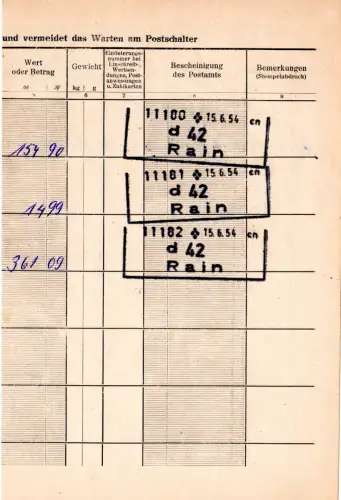 und vermeidet das Warten am Postschalter
Wert
oder Betrag
Gewicht
Einlieferungs-
nummer bei
Einschreib-,
Wertsen-
dungen, Post-
anweisungen
u. Zahlkarten
Bescheinigung
des Postamts
Bemerkungen
(Stempelabdruck)
kg g
6 7 8 9
11180 15.6.54 cn
d 42
154 90 Rain
11181 15.6.54 cn
d 42
14 99 Rain
11182 15.6.54 cn
d 42
361 09 Rain